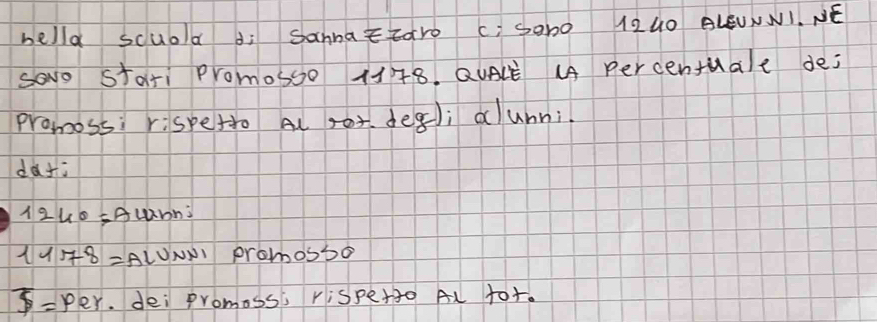 nella scuola di Sannazzaro ci sono 1240 ALUNNI. NE
SONO Stati Promosso 1178. QUALE LA Percentuale dei
Promossi rispetto AL tot. degli alunni.
dati
1240 = Alunni
1178 = ALUNNI promosso
= Per. dei promossi rispetto AL tot.